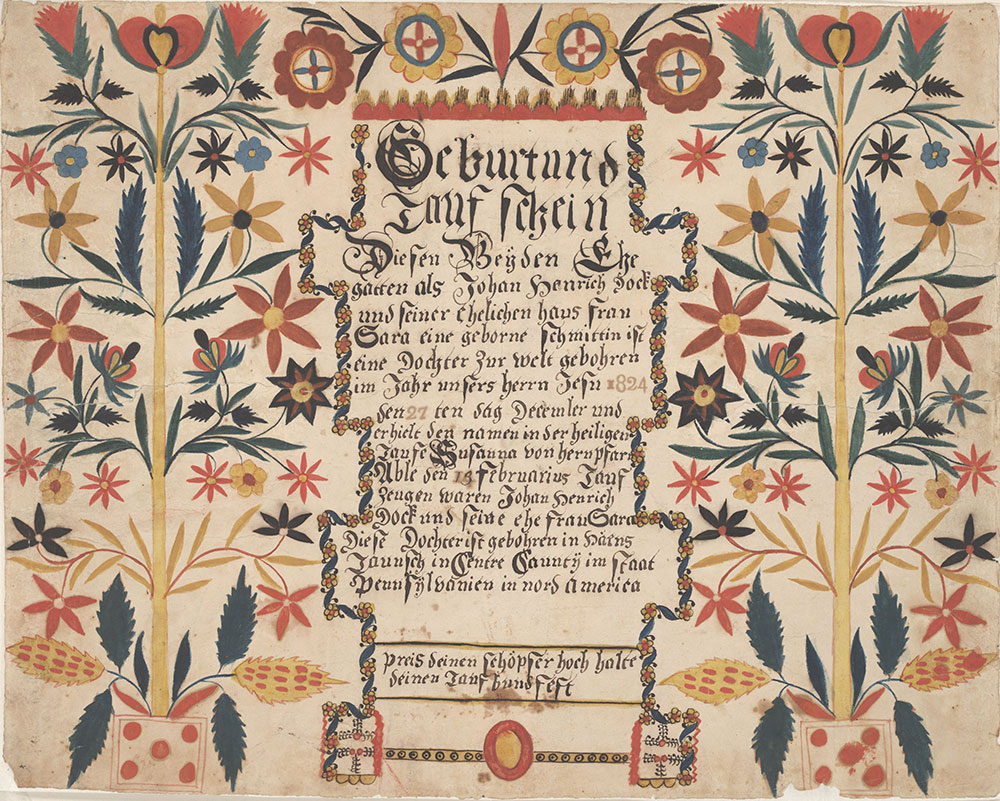 Geburt und
Tauf schein
Diesen Beyden Ehe
gatten als Johan Henrich Dock
und seiner Ehelichen haus frau
Sara eine geborne schmittin ist
eine Dochter Zur welt gebohren
im Jahr unsers herrn Jesu 1824
den 27 ten dag Decemler und
erhielt den namen in der heiligen
Taufe Susanna von hern pfarr
Able den 13 Februarius Tauf
Zeugen waren Johan Henrich
Dock und seine ehe frau Sara
Diese Dochter ist gebohren in Hains
Taunsch in Centre Caunty im staat
Pennsylvanien in nord America
preis deinen schöpfer hoch halte
deinen Tauf bund fest